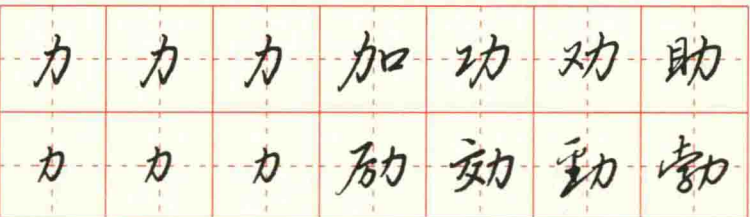 力力力加功劝助
力力力励効勁勃